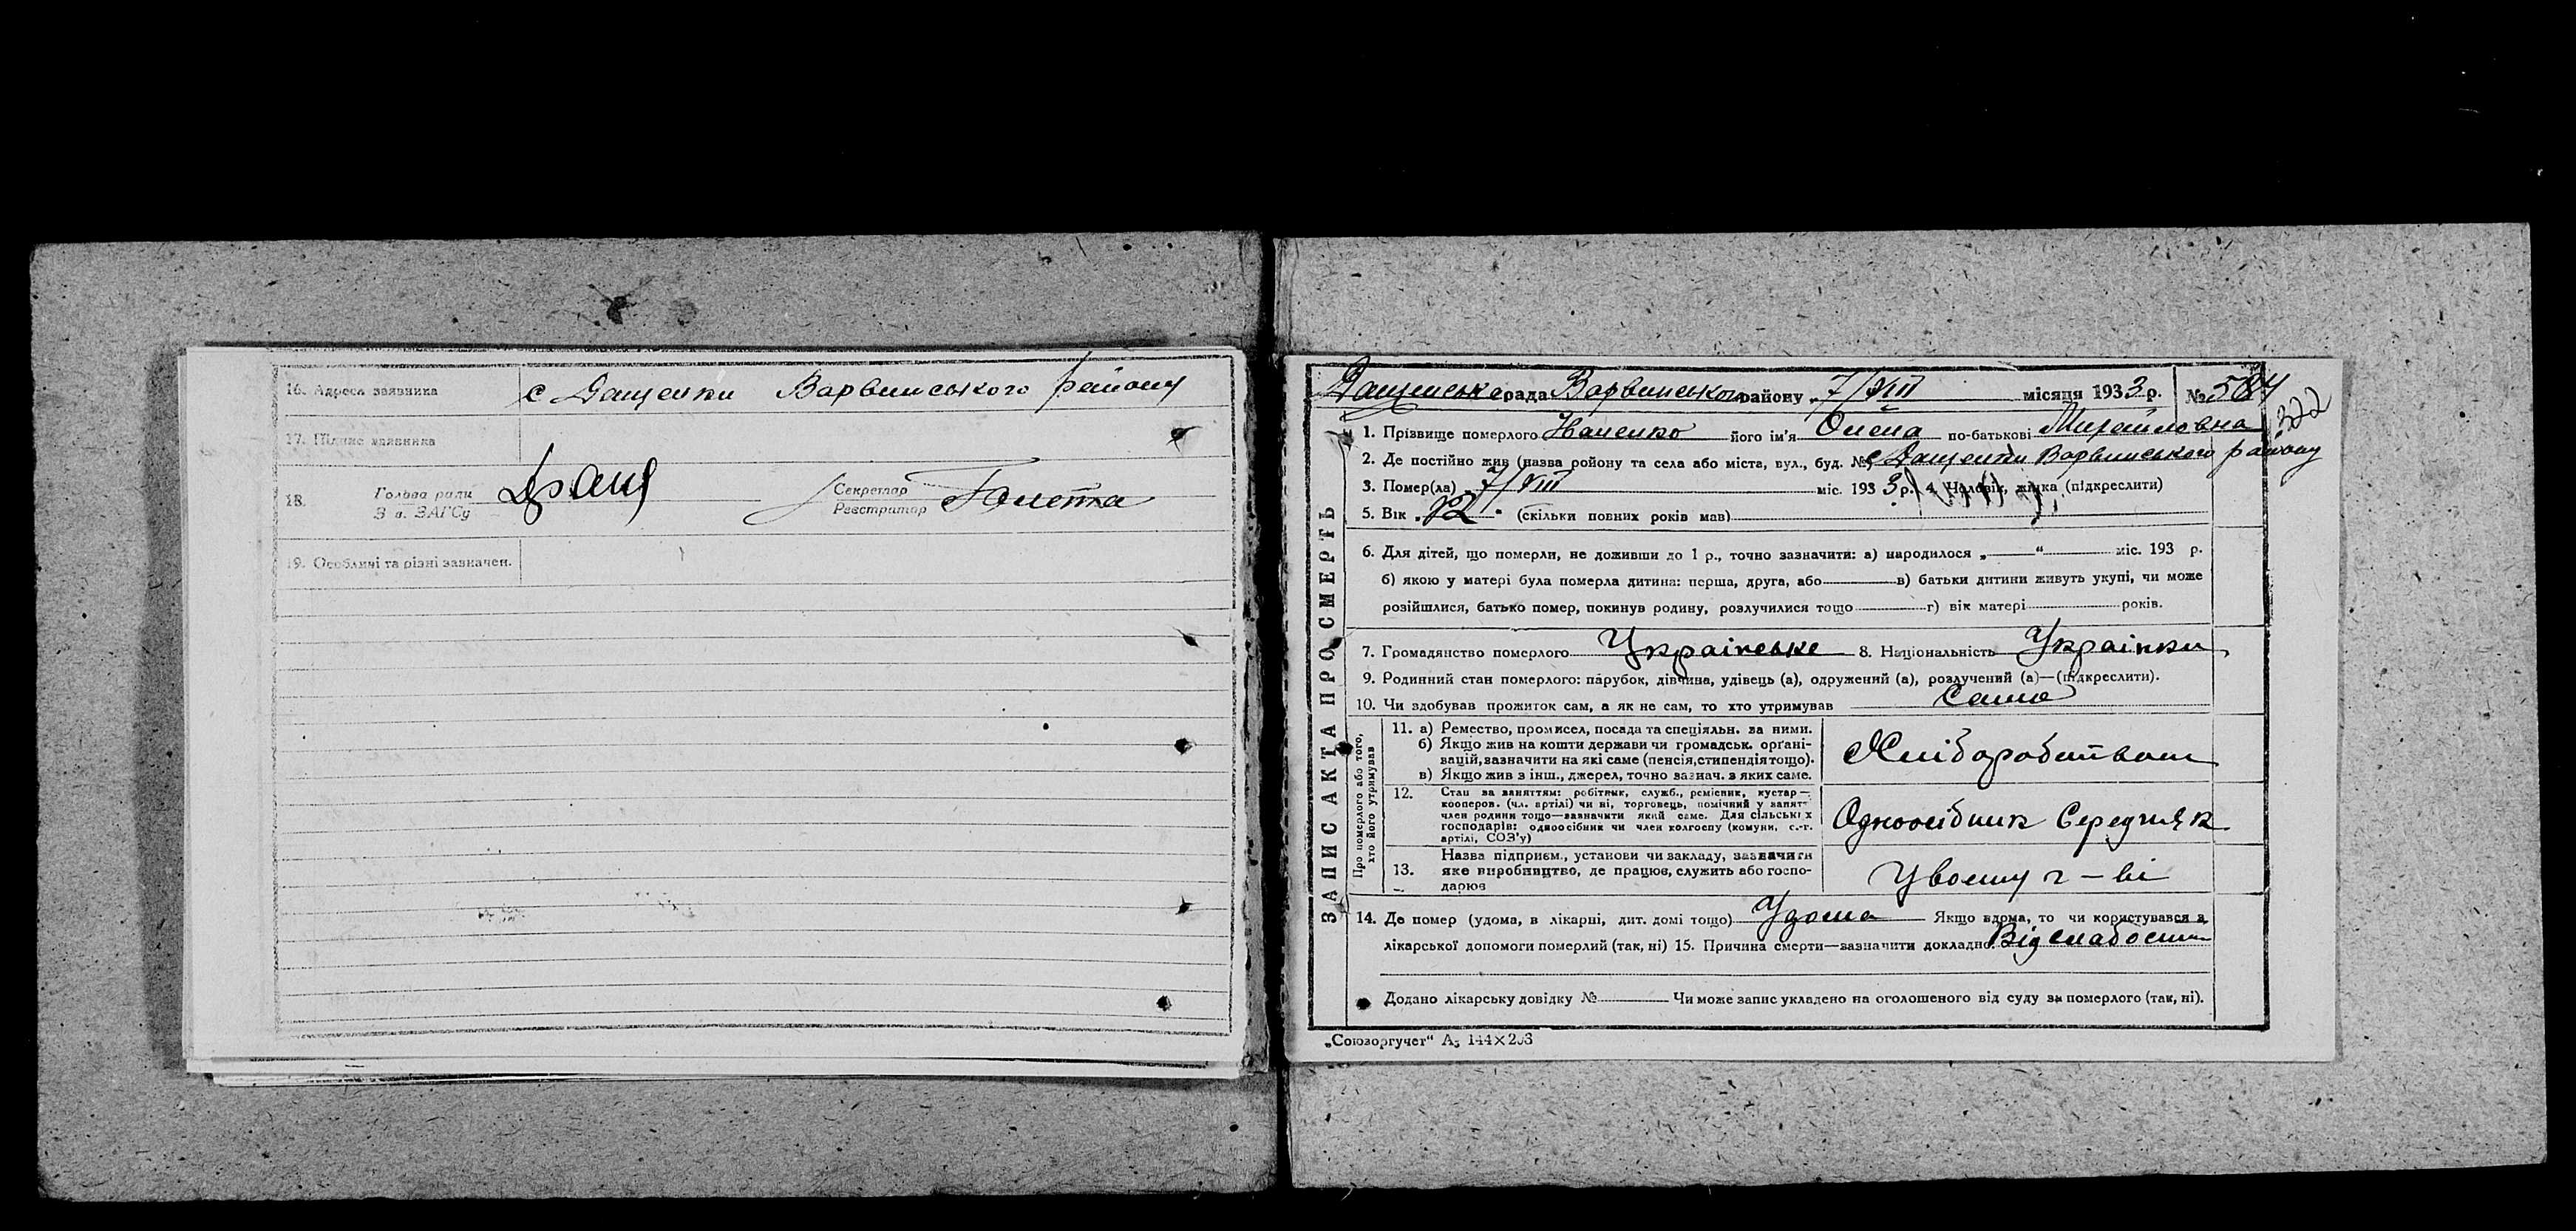 16. Адреса заявника с Дащенки Варвинського району
17. Підпис заявника
18. Голова ради
З в. ЗАГСу
Секретар
Реєстратор
19. Особливі та різні зазначен.
ЗАПИС АКТА ПРО СМЕРТЬ
Дащенська рада Варвинського району 7/VIII місяця 1933 р. № 584
322
1. Прізвище померлого його ім'я Олена по-батькові Михайловна
2. Де постійно жив (назва району та села або міста, вул., буд. № с Дащенки Варвинського району
3. Помер(ла) 7/VIII міс. 1933 р. 4. Чоловік, жінка (підкреслити)
5. Вік „72" (скільки повних років мав)
6. Для дітей, що померли, не доживши до 1 р., точно зазначити: а) народилося „ " міс. 193 р.
б) якою у матері була померла дитина: перша, друга, або в) батьки дитини живуть укупі, чи може
розійшлися, батько помер, покинув родину, розлучилися тощо г) вік матері років.
7. Громадянство померлого Українське 8. Національність Українки
9. Родинний стан померлого: парубок, дівчина, удівець (а), одружений (а), розлучений (а)—(підкреслити).
10. Чи здобував прожиток сам, а як не сам, то хто утримував Сама
Про померлого або того,
хто його утримував
11. а) Ремество, промисел, посада та спеціяльн. за ними.
б) Якщо жив на кошти держави чи громадськ. орґані-
зацій, зазначити на які саме (пенсія, стипендія тощо).
в) Якщо жив з інш., джерел, точно зазнач. з яких саме.
Хліборобством
12. Стан за заняттям: робітник, служб., ремісник, кустар—
кооперов. (чл. артілі) чи ні, торговець, помічний у занятт
член родини тощо—зазначити який саме. Для сільських
господарів: одноосібник чи член колгоспу (комуни, с.-г.
артілі, СОЗ'у)
Одноосібник Середняк
13. Назва підприєм., установи чи закладу, зазначити
яке виробництво, де працює, служить або госпо-
дарює
У воему г-ві
14. Де помер (удома, в лікарні, дит. домі тощо) Удома Якщо вдома, то чи користувався з
лікарської допомоги померлий (так, ні) 15. Причина смерти—зазначити докладно. Від слабости
Додано лікарську довідку № Чи може запис укладено на оголошеного від суду за померлого (так, ні).
„Союзоргучет" А5 144×203